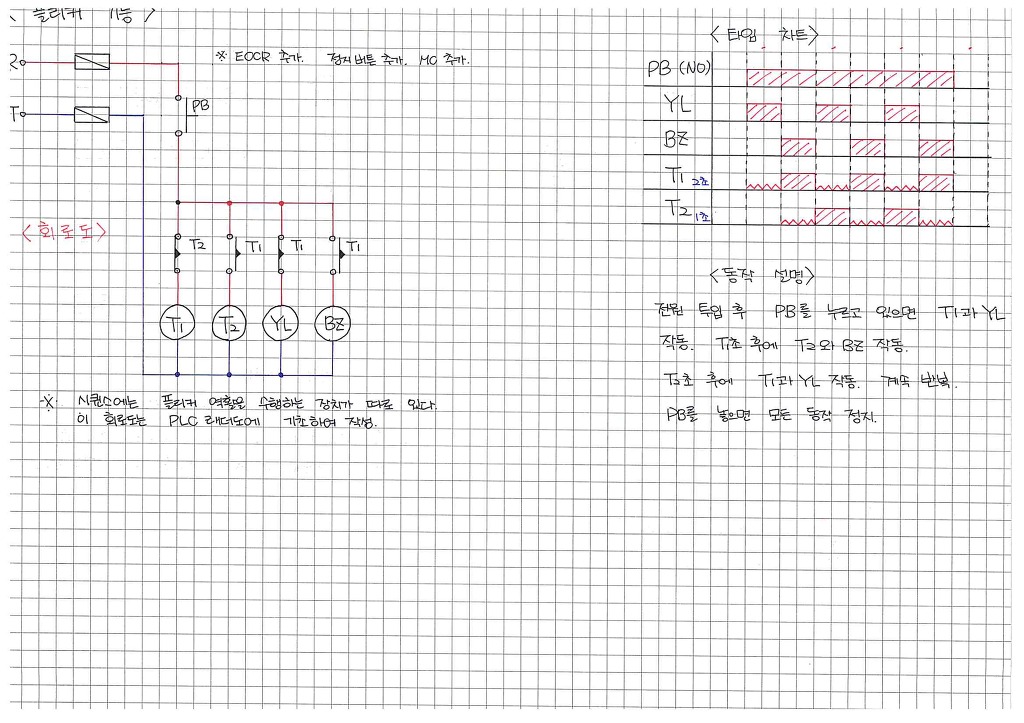 〈 플리커 기능 〉
※ EOCR 추가. 정지버튼 추가. MC 추가.
R
T
PB
〈회로도〉
T2 T1 T1 T1
T1 T2 YL BZ
※ 시퀀스에는 플리커 역할을 수행하는 장치가 따로 있다.
이 회로도는 PLC 래더도에 기초하여 작성.
〈타임 차트〉
PB (NO)
YL
BZ
T1 2초
T2 1초
〈동작 설명〉
전원 투입 후 PB를 누르고 있으면 T1과 YL
작동. T1초 후에 T2와 BZ 작동.
T2초 후에 T1과 YL 작동. 계속 반복.
PB를 놓으면 모든 동작 정지.